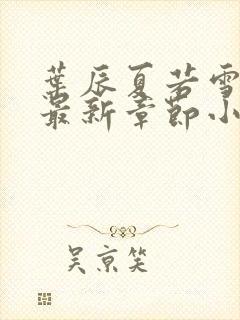 葉辰夏若雪
最新章節小
吴京笑